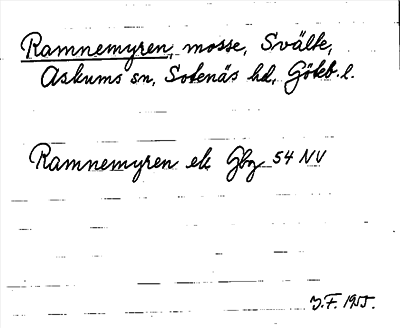 Ramnemyren, mosse, Svälte,
Askums sn, Sotenäs hd, Göteb. l.
Ramnemyren ek Gbg 54 NV
J.F. 1955.